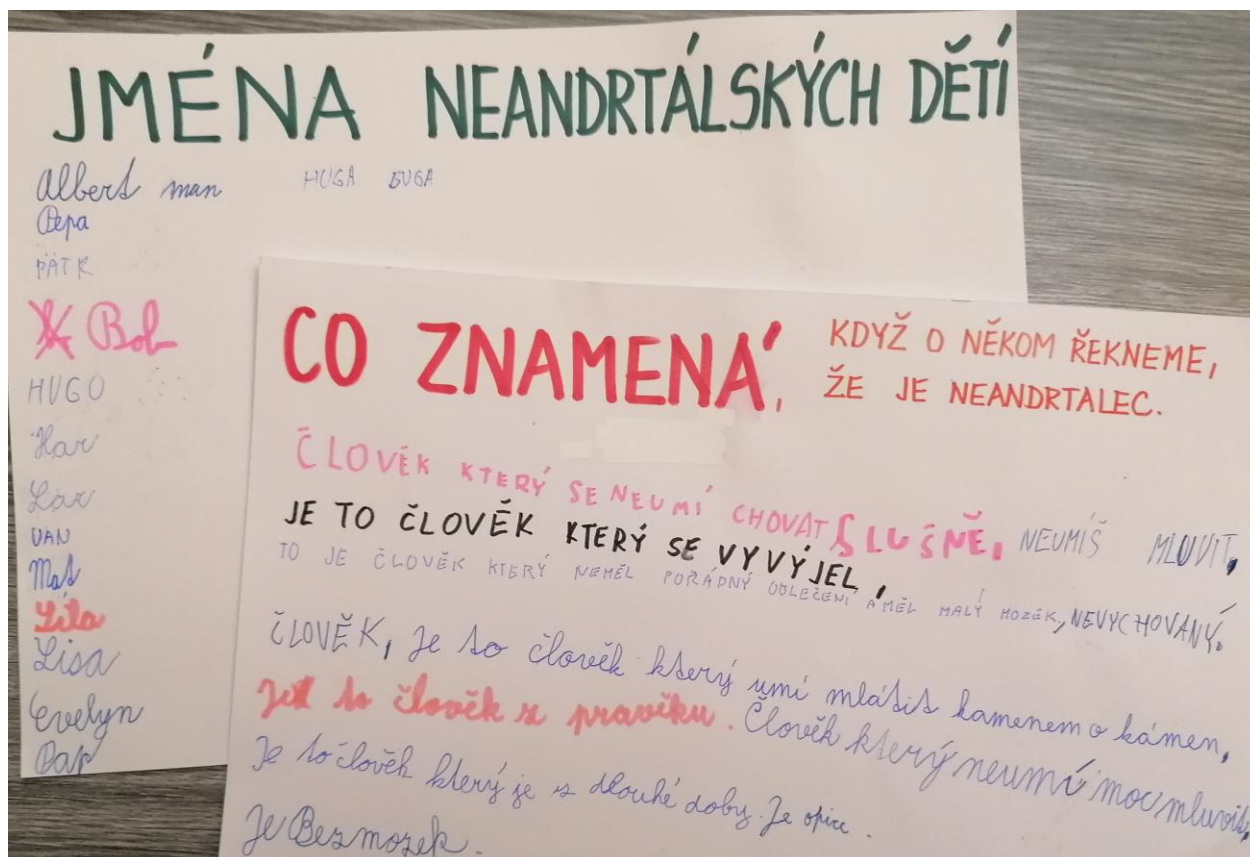 JMÉNA NEANDRTÁLSKÝCH DĚTÍ
Albert man HUGA BUGA
Pepa
PÄTR
Bob
HUGO
Har
Lar
VAN
Mat
Lila
Lisa
Evelyn
CO ZNAMENÁ,
KDYŽ O NĚKOM ŘEKNEME,
ŽE JE NEANDRTALEC.
ČLOVĚK KTERÝ SE NEUMÍ CHOVAT SLUŠNĚ, NEUMÍŠ MLUVIT,
JE TO ČLOVĚK KTERÝ SE VYVÝJEL,
TO JE ČLOVĚK KTERÝ NEMĚL POŘÁDNÝ OBLEČENÍ A MĚL MALÝ MOZEK, NEVYCHOVANÝ.
ČLOVĚK, je to člověk který umí mlátit kamenem o kámen,
Je to člověk z pravěku. Člověk který neumí moc mluvit,
Je to člověk který je z dlouhé doby. Je opice.
Je Bezmozek.